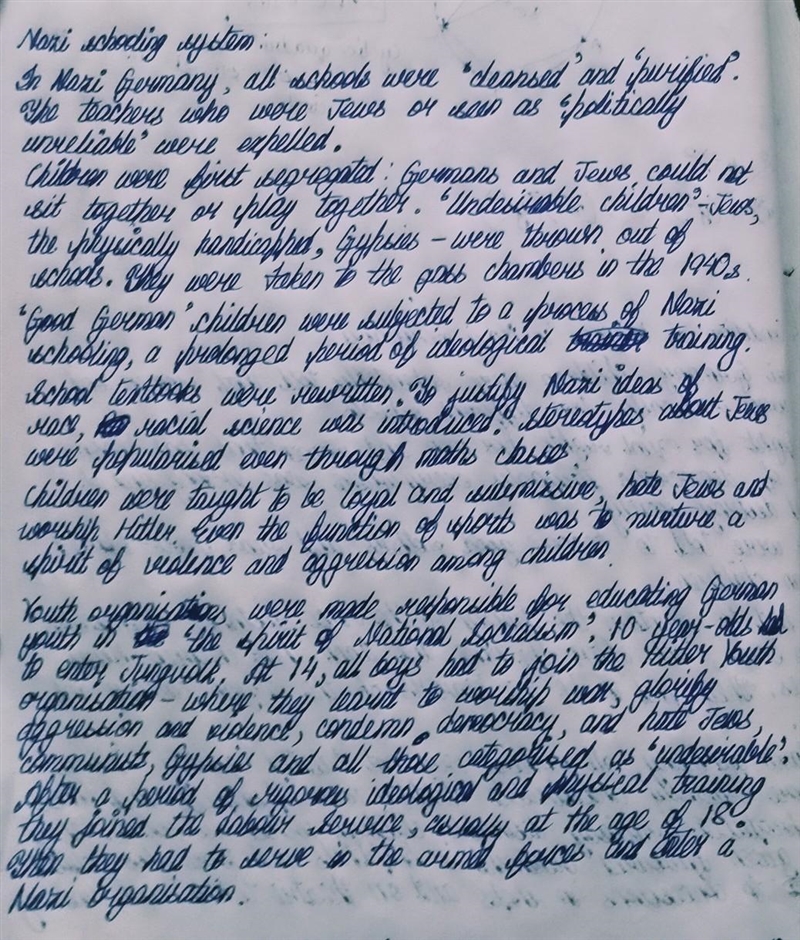 Nazi schooling system:
In Nazi Germany, all schools were "cleansed" and "purified".
The teachers who were Jews or seen as "politically
unreliable" were expelled.
Children were first segregated: Germans and Jews could not
sit together or play together. "Undesirable children" - Jews,
the physically handicapped, Gypsies - were thrown out of
schools. They were taken to the gass chambers in the 1940s.
"Good German" children were subjected to a process of Nazi
schooling, a prolonged period of ideological training.
School textbooks were rewritten. To justify Nazi ideas of
race, racial science was introduced. Stereotypes about Jews
were popularised even through maths classes
Children were taught to be loyal and submissive, hate Jews and
worship Hitler. Even the function of sports was to nurture a
spirit of violence and aggression among children.
Youth organisations were made responsible for educating German
youth in "the spirit of National Socialism". 10 year-olds had
to enter Jungvolk. At 14, all boys had to join the Hitler Youth
organisation - where they learnt to worship war, glorify
aggression and violence, condemn democracy, and hate Jews,
communists, Gypsies and all those categorised as "undesirable".
After a period of rigorous ideological and physical training
they joined the Labour Service, usually at the age of 18.
Then they had to serve in the armed forces and enter a
Nazi organisation.